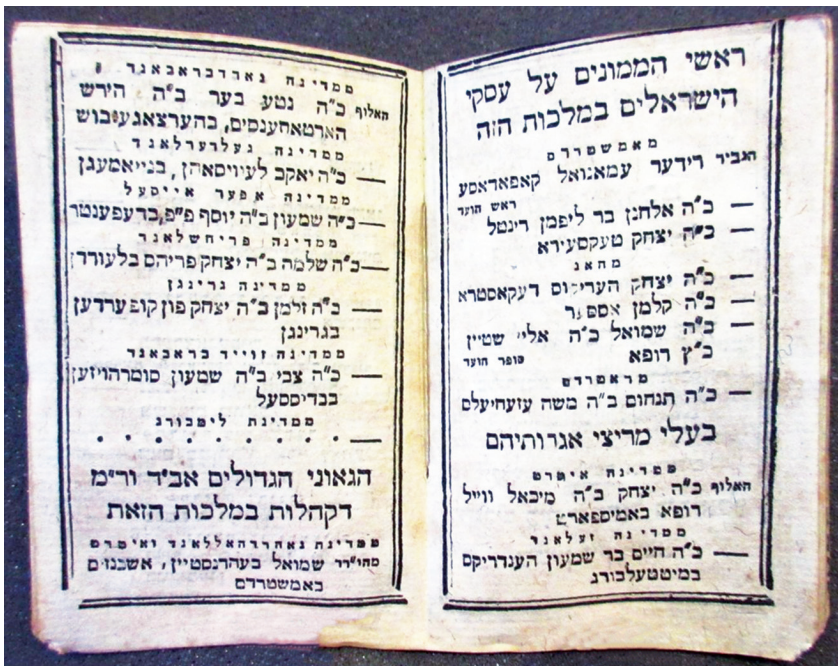 ראשי הממונים על עסקי
הישראלים במלכות הזה
מאמשטרדם
הגביר רידער עמאנואל קאפאדאסע
ראש הועד
— כ"ה אלחנן בר ליפמן רינטל
— כ"ה יצחק טעקסעירא
מהאג
— כ"ה יצחק הענריקוס דעקאסטרא
— כ"ה קלמן
— כ"ה שמואל כ"ה שטיין
כ"ץ רופא סופר הועד
— כ"ה תנחום ב"ה משה
בעלי מריצי אגרותיהם
האלוף כ"ה יצחק ב"ה מיכאל ווייל
רופא
ממדינה זעלאנד
— כ"ה חיים בר שמעון הענדריקס
במיטטעלבורג
ממדינה נארדבראבאנד
האלוף כ"ה נטע בער ב"ה הירש
ממדינה געלדערלאנד
— כ"ה יאקב לעוויסאהן, בניימעגן
ממדינה אפער אייסעל
— כ"ה שמעון ב"ה יוסף פ"פ, בדעפענטר
ממדינה פריחשלאנד
— כ"ה שלמה ב"ה יצחק פריהם בלעוורדן
ממדינה גרינגן
— כ"ה זלמן ב"ה יצחק פון קופערדען
בגרינגן
ממדינה זוייד בראבאנד
— כ"ה צבי ב"ה שמעון סומרהויזען
בבריססעל
ממדינת לימבורג
— . . . . . . . . .
הגאוני הגדולים אב"ד ור"מ
דקהלות במלכות הזאת
ממדינה נאהרדהאללאנד ואיטרט
מהו"רר שמואל בעהרנסטיין, אשכנזים
באמשטרדם